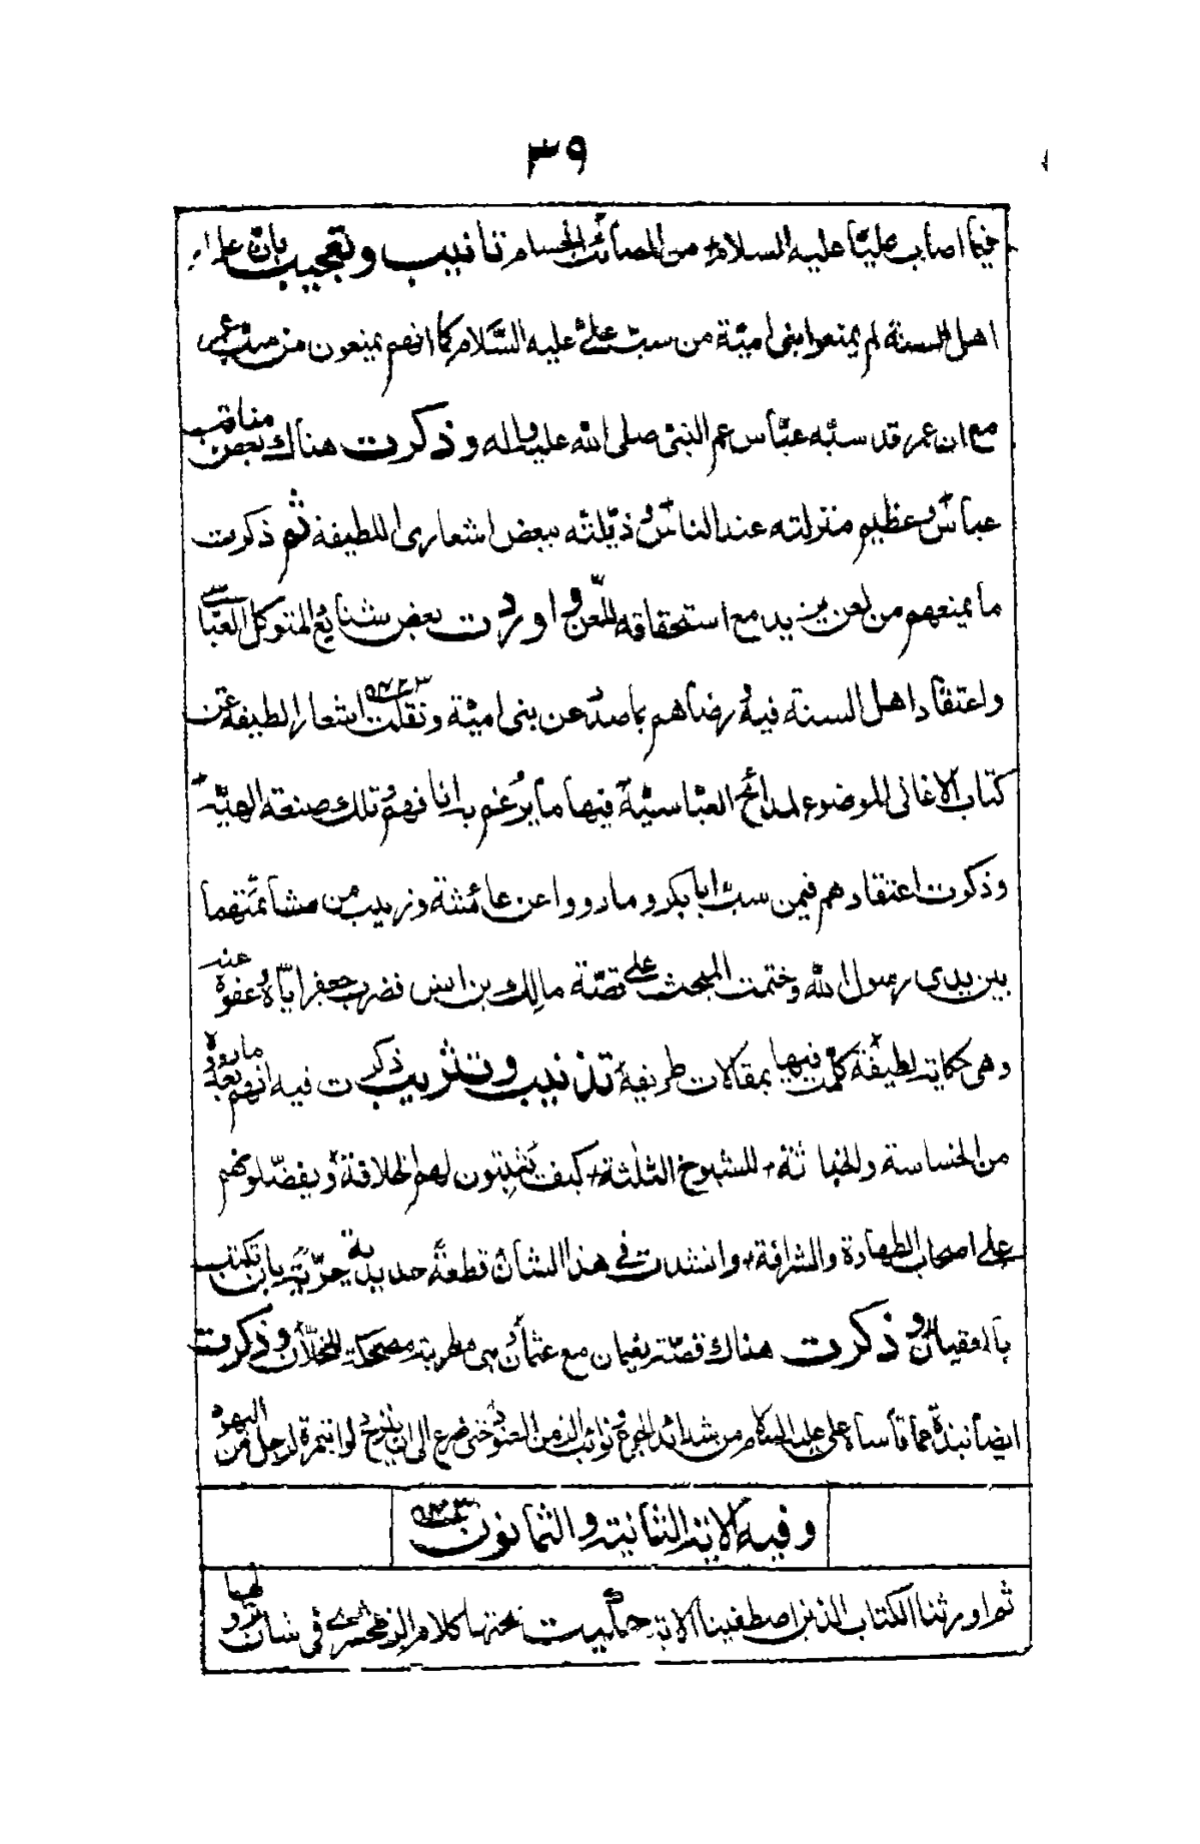 ٣٩
فيما اصاب عليّا عليه السلام من المصائب الجسام تانيب وتعجيب بان علماء
اهل السنة لم يمنعوا بنى اميّة من سبّ علىّ عليه السّلام كما انهم يمنعون من سبّ عمر
مع ان عمر قد سبّه عبّاس عم النبى صلى الله عليه واله وذكرت هناك بعض مناقب
عباس وعظيم منزلته عند الناس وذيّلته ببعض اشعارى اللطيفة ثم ذكرت
ما يمنعهم من لعن يزيد مع استحقاقه للّعن واوردت بعض شنايع المتوكل العبّاسى
واعتقاد اهل السنة فيه ورضاهم بما صدر عن بنى اميّة ونقلت اشعارا لطيفة عن
كتاب الاغانى الموضوع لمدائح العبّاسيّة فيها ما يرغم به انافهم وتلك صنعة الهيّة
وذكرت اعتقادهم فيمن سبّ ابا بكر وما رووا عن عائشة وزينب من مشاتمتهما
بين يدى رسول الله وختمت المبحث على قصّة مالك بن انس فضرب جعفر ايّاه وعفوه عنه
وهى حكاية لطيفة كلّمت فيها بمقالات طريفة تذنيب وتثريب ذكرت فيه انهم بعد ما رووه
من الخساسة والخباثة للشيوخ الثلثة كيف يثبتون لهم الخلافة ويفضّلونهم
على اصحاب الطهارة والشرافة وانشدت فى هذا الشان قطعة جديدة حريّة بان تكتب
بالعقيان وذكرت هناك قصّة نعيمان مع عثمان هى مطربة مضحكة للخلّان وذكرت
ايضا نبذة مما قاساه على عليه السلام من شدائد الجوع ونوائب الزمن حتى ضرع الى ان ينزح دلوا بتمرة لرجل من اليهود
وفيه الاية الثانية والثمانون
ثم اورثنا الكتاب الذين اصطفينا الاية حكيت تحتها كلام الزمخشرى فى شان نزولها